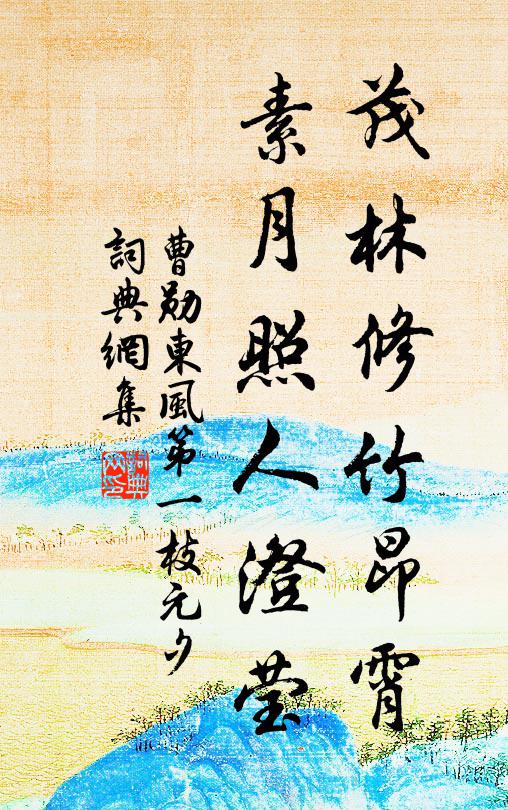 茂林修竹昂霄
素月照人澄莹
曹勋東風第一枝元夕
詞典網集